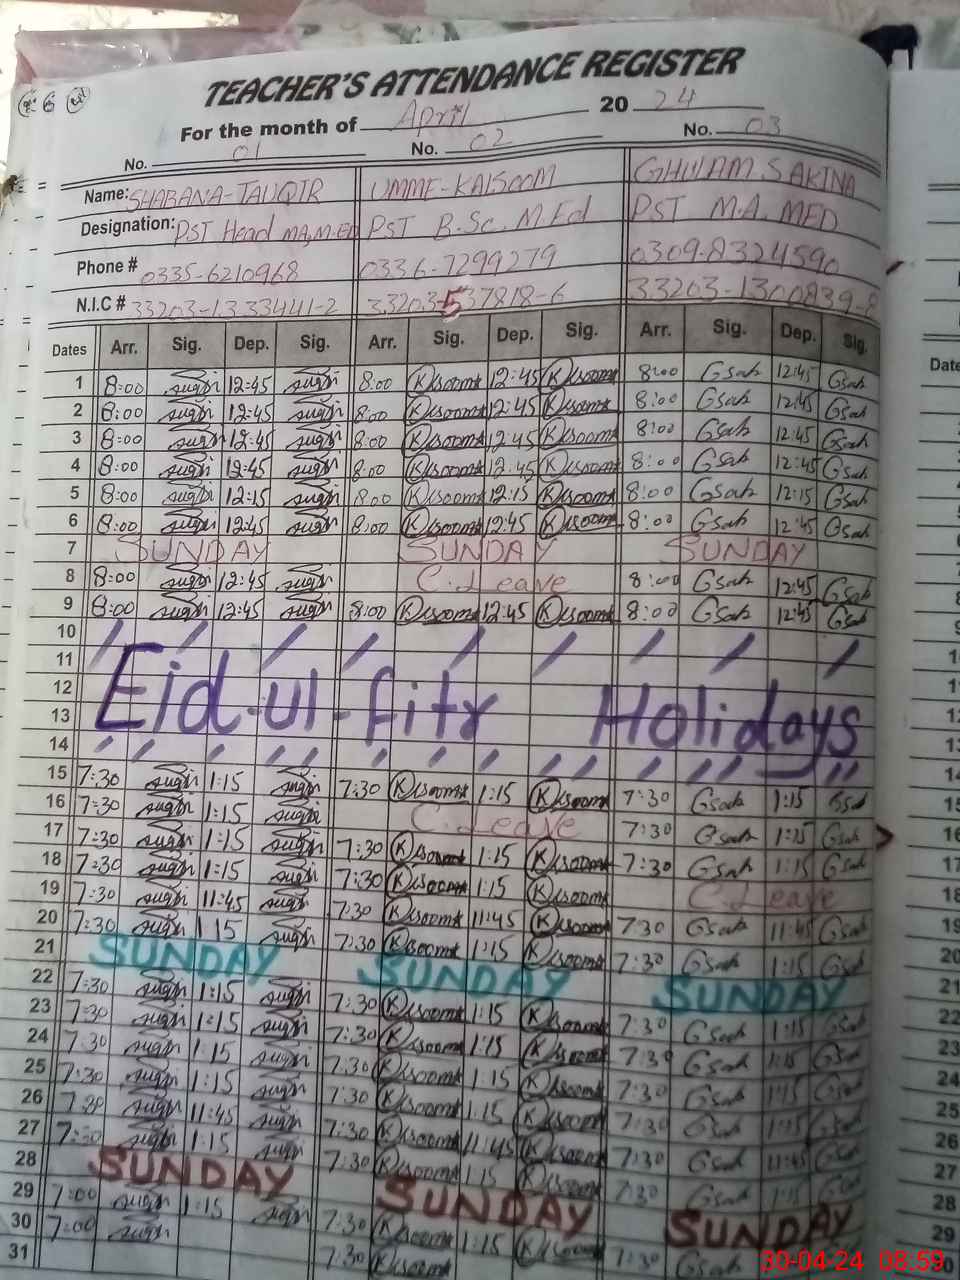 TEACHER'S ATTENDANCE REGISTER
For the month of April 20 24
No. 01 No. 02 No. 03
Name: SHABANA-TAUQIR UMME-KALSOOM GHULAM SAKINA
Designation: PST Head MA, M.ED PST B.Sc. M.Ed PST M.A. MED
Phone # 0335-6210968 0336-7299279 0309-8324590
N.I.C # 33203-1333441-2 33203-537818-6 33203-1300839-8
Dates Arr. Sig. Dep. Sig. Arr. Sig. Dep. Sig. Arr. Sig. Dep. Sig.
1 8:00 12:45 8:00 Klsoom 12:45 Klsoom 8:00 Gsak 12:45 Gsak
2 8:00 12:45 8:00 Klsoom 12:45 Klsoom 8:00 Gsak 12:45 Gsak
3 8:00 12:45 8:00 Klsoom 12:45 Klsoom 8:00 Gsak 12:45 Gsak
4 8:00 12:45 8:00 Klsoom 12:45 Klsoom 8:00 Gsak 12:45 Gsak
5 8:00 12:15 8:00 Klsoom 12:15 Klsoom 8:00 Gsak 12:15 Gsak
6 8:00 12:45 8:00 Klsoom 12:45 Klsoom 8:00 Gsak 12:45 Gsak
7 SUNDAY SUNDAY SUNDAY
8 8:00 12:45 C.Leave 8:00 Gsak 12:45 Gsak
9 8:00 12:45 8:00 Klsoom 12:45 Klsoom 8:00 Gsak 12:45 Gsak
10
11
12 Eid-ul-fitr Holidays
13
14
15 7:30 1:15 7:30 Klsoom 1:15 Klsoom 7:30 Gsak 1:15 Gsak
16 7:30 1:15 C.Leave 7:30 Gsak 1:15 Gsak
17 7:30 1:15 7:30 Klsoom 1:15 Klsoom 7:30 Gsak 1:15 Gsak
18 7:30 1:15 7:30 Klsoom 1:15 Klsoom C.Leave
19 7:30 11:45 7:30 Klsoom 11:45 Klsoom 7:30 Gsak 11:45 Gsak
20 7:30 1:15 7:30 Klsoom 1:15 Klsoom 7:30 Gsak 1:15 Gsak
21 SUNDAY SUNDAY SUNDAY
22 7:30 1:15 7:30 Klsoom 1:15 Klsoom 7:30 Gsak 1:15 Gsak
23 7:30 1:15 7:30 Klsoom 1:15 Klsoom 7:30 Gsak 1:15 Gsak
24 7:30 1:15 7:30 Klsoom 1:15 Klsoom 7:30 Gsak 1:15 Gsak
25 7:30 1:15 7:30 Klsoom 1:15 Klsoom 7:30 Gsak 1:15 Gsak
26 7:30 11:45 7:30 Klsoom 11:45 Klsoom 7:30 Gsak 11:45 Gsak
27 7:30 1:15 7:30 Klsoom 1:15 Klsoom 7:30 Gsak 1:15 Gsak
28 SUNDAY SUNDAY SUNDAY
29 7:00 1:15 7:30 Klsoom 1:15 Klsoom 7:30 Gsak
30 7:00 7:30 Klsoom
31
30-04-24 08:59